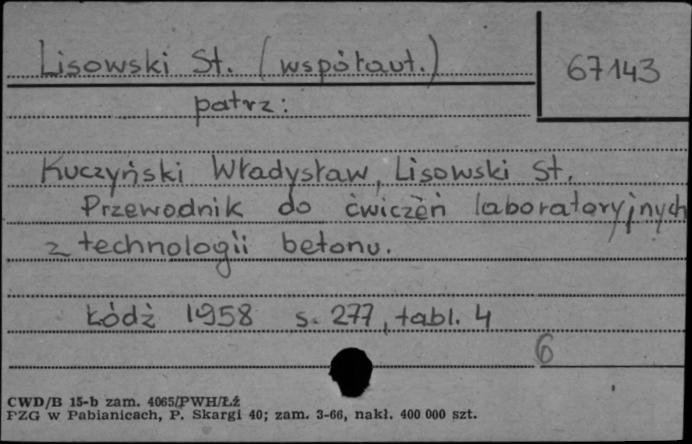 Lisowski St. (współaut.)
67143
patrz:
Kuczyński Władysław, Lisowski St.
Przewodnik do ćwiczeń laboratoryjnych
z technologii betonu.
Łódź 1958 s. 277, tabl. 4
6
CWD/B 15-b zam. 4065/PWH/Łź
PZG w Pabianicach, P. Skargi 40; zam. 3-66, nakł. 400 000 szt.